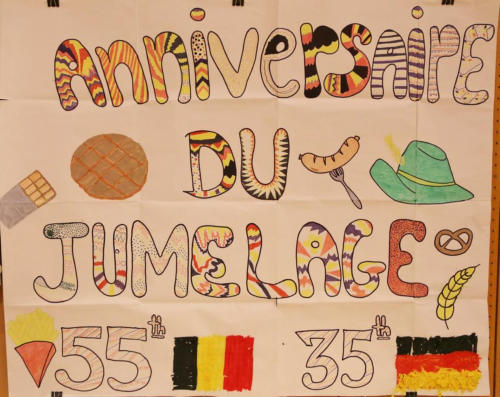 Anniversaire
DU
JUMELAGE
55th 35th